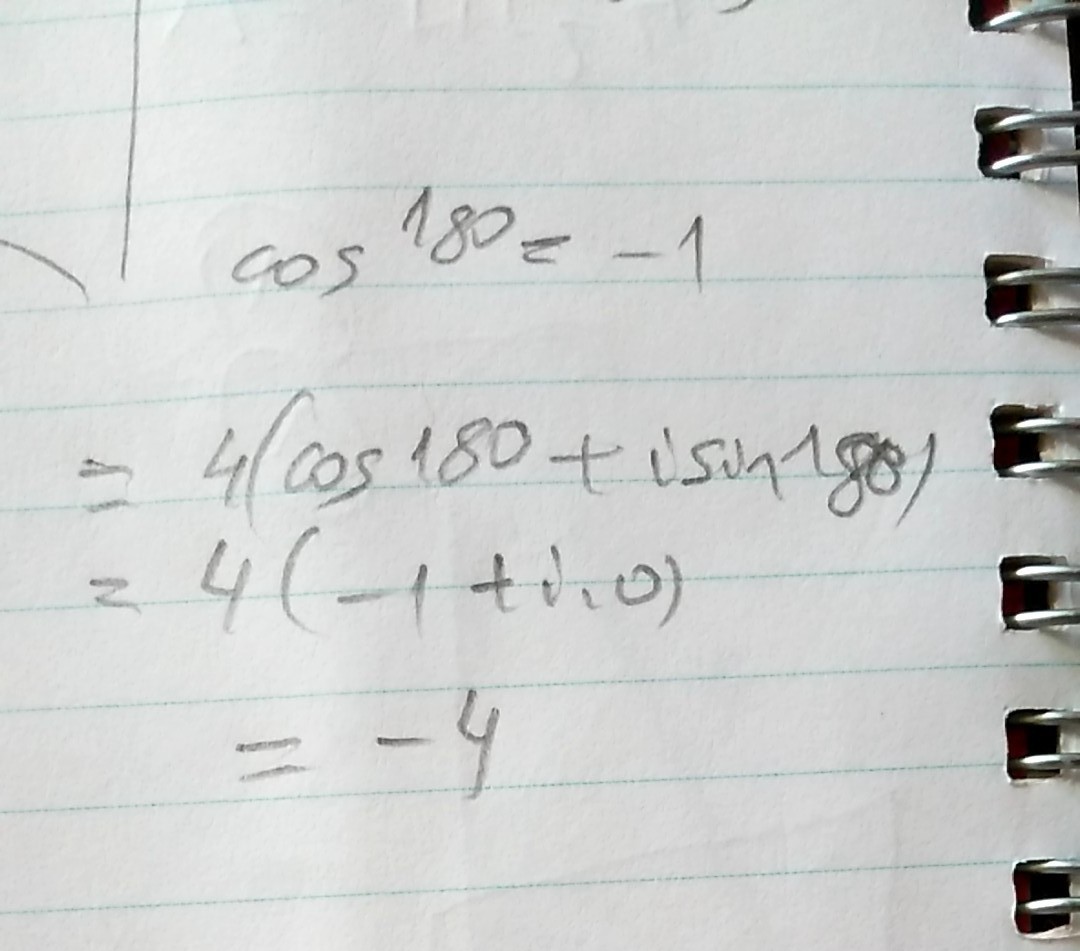 cos 180 = -1
= 4(cos 180 + i sin 180)
= 4(-1 + i.0)
= -4